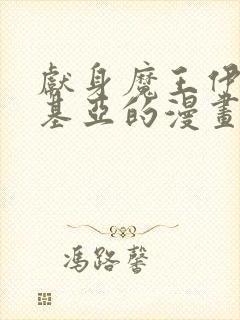 獻身魔王伊
基亞的漫畫
馮路馨